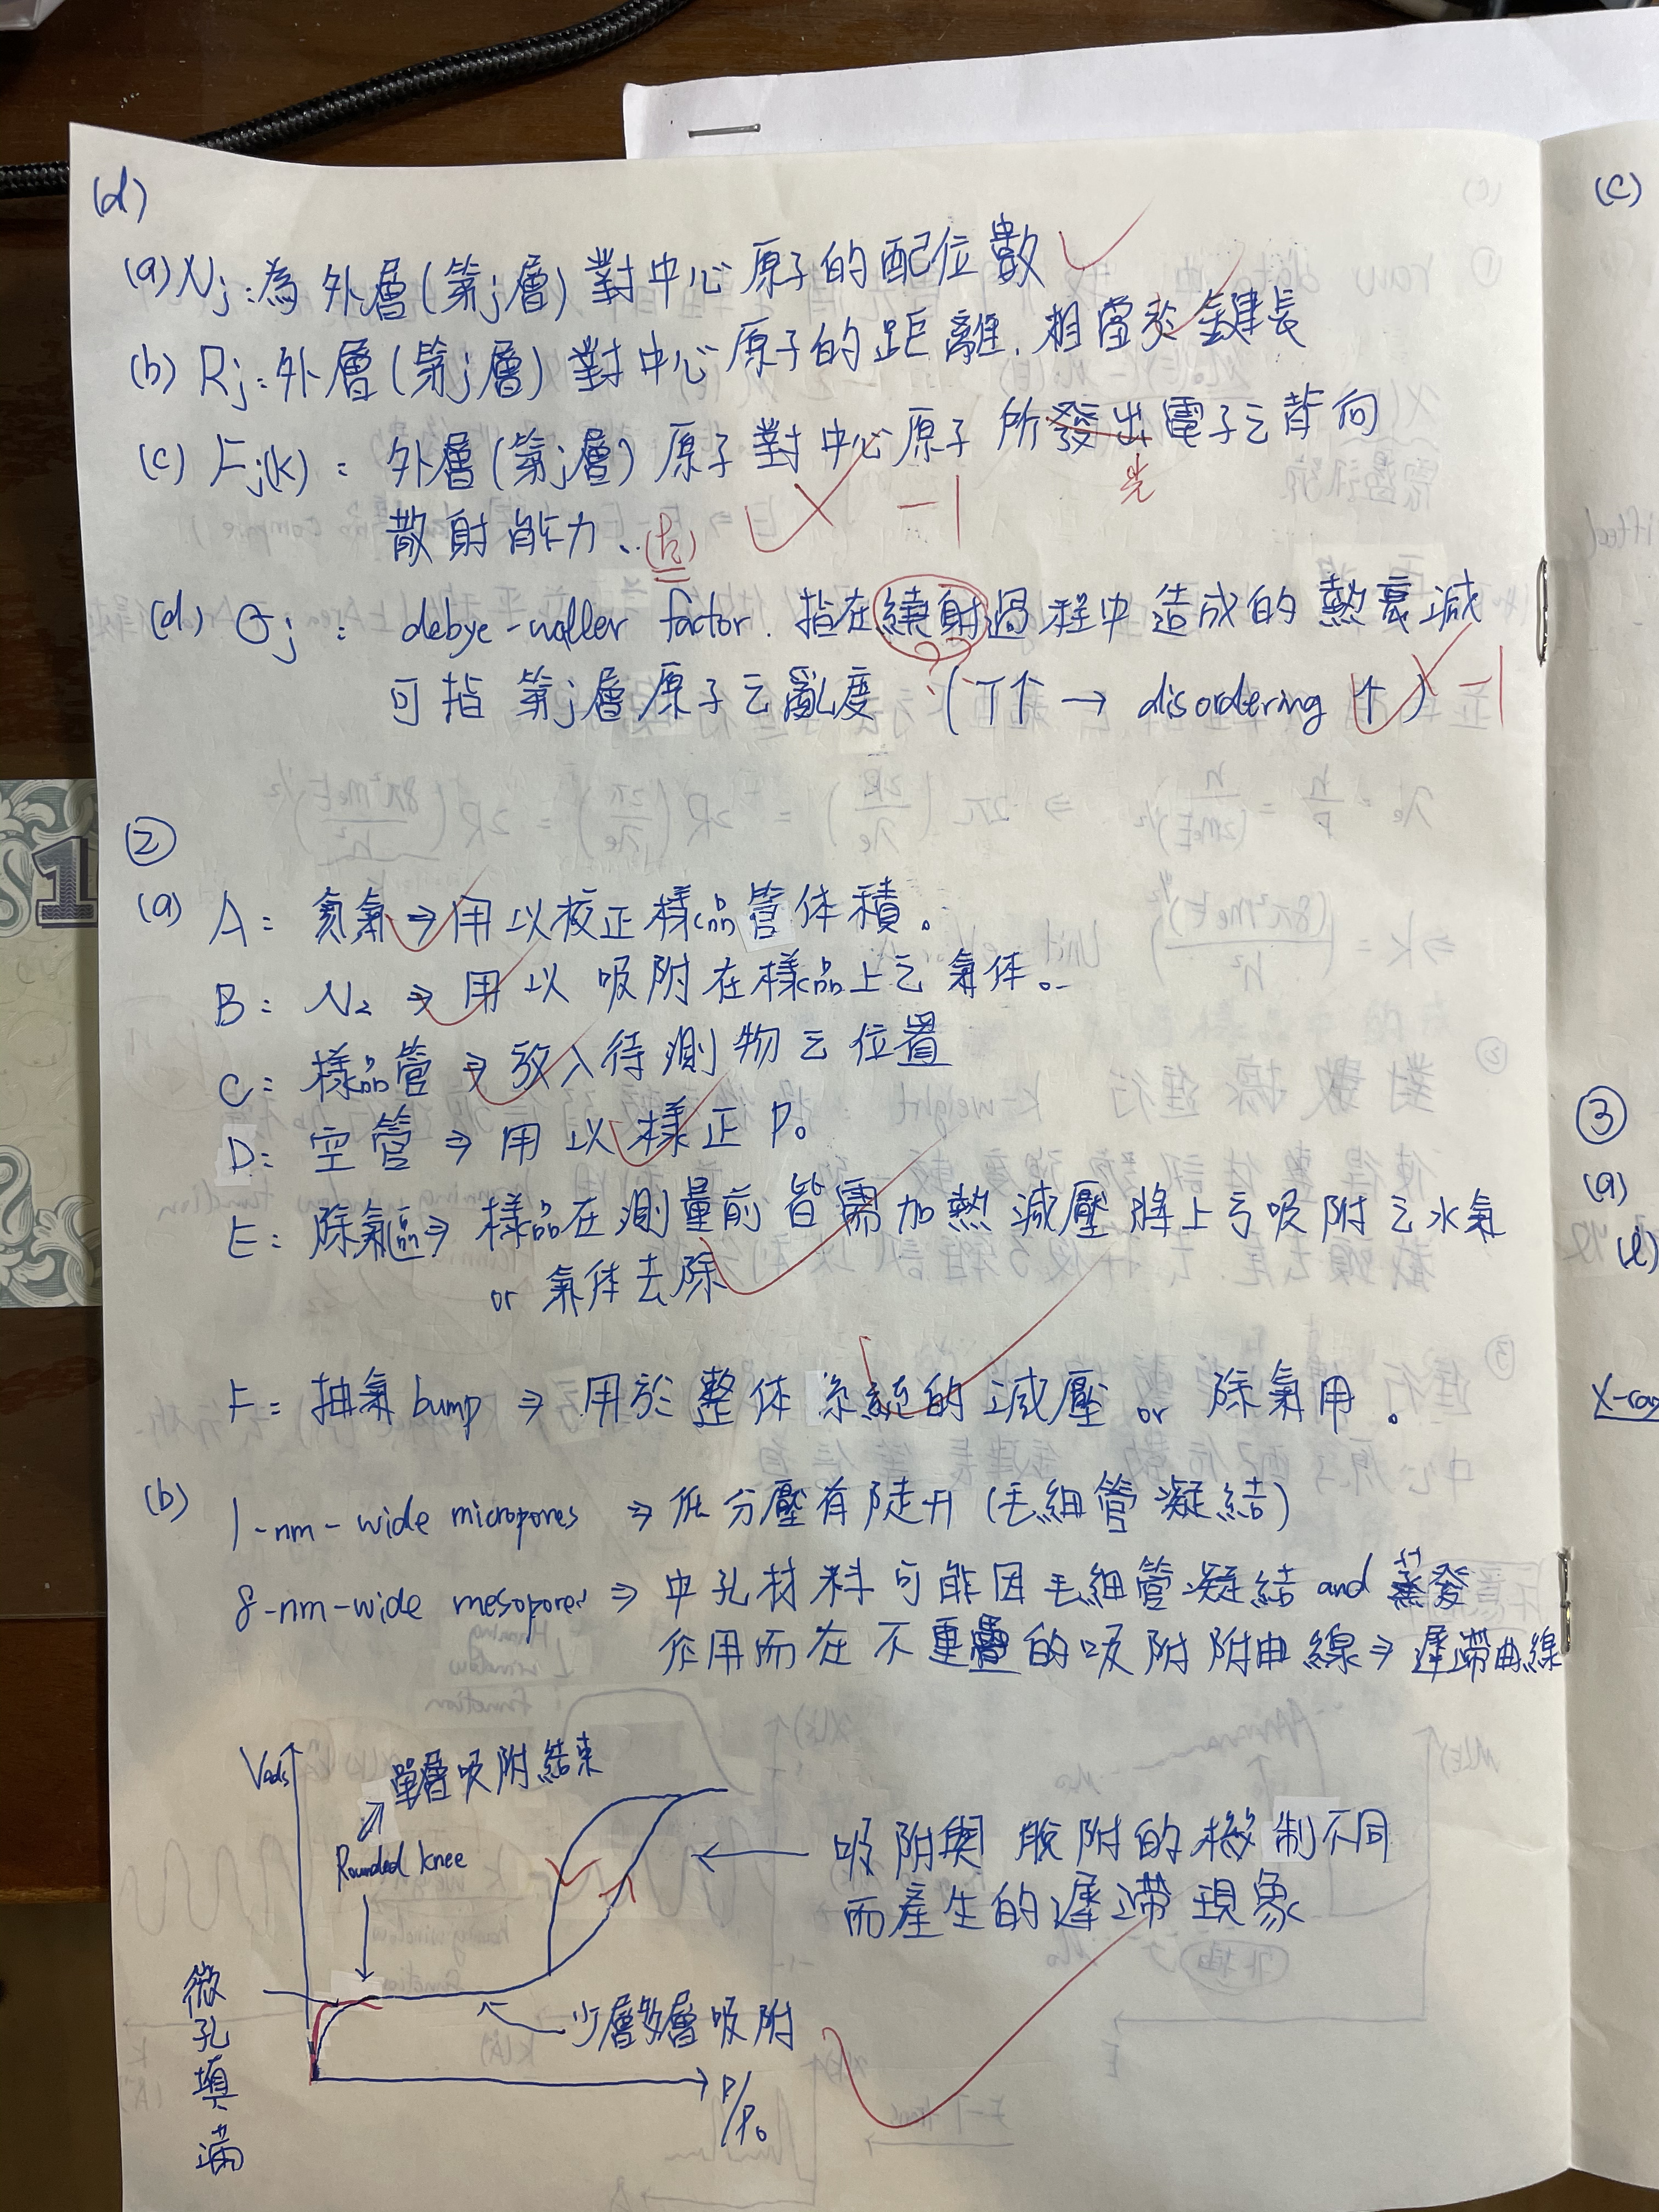 (d)
(a) Nj:為外層(第j層)對中心原子的配位數
(b) Rj:外層(第j層)對中心原子的距離.相當於鍵長
(c) Fj(k): 外層(第j層)原子對中心原子所發出電子之背向
光
散射能力、
-1
(d) σj: debye-waller factor. 指在繞射過程中造成的熱衰減
??
可指第j層原子之亂度 (T↑ → disordering ↑)
-1
②
(a) A: 氦氣 ⇒ 用以校正樣品管体積。
B: N2 ⇒ 用以吸附在樣品上之氣体。
C: 樣品管 ⇒ 放入待測物之位置
D: 空管 ⇒ 用以樣正 P0
E: 除氣區 ⇒ 樣品在測量前皆需加熱減壓將上亏吸附之水氣
or 氣体去除
F: 抽氣 bump ⇒ 用於整体系統的減壓 or 除氣用。
(b) 1-nm-wide micropores ⇒ 低分壓有陡升(毛細管凝結)
8-nm-wide mesopores ⇒ 中孔材料可能因毛細管凝結 and 蒸發
作用而在不重疊的吸附附曲線 ⇒ 遲滯曲線
Vads
單層吸附結束
Rounded knee
吸附與脫附的機制不同
而產生的遲滯現象
微孔填滿
少層多層吸附
P/P0
(c)
③
(a)
X-ray
1